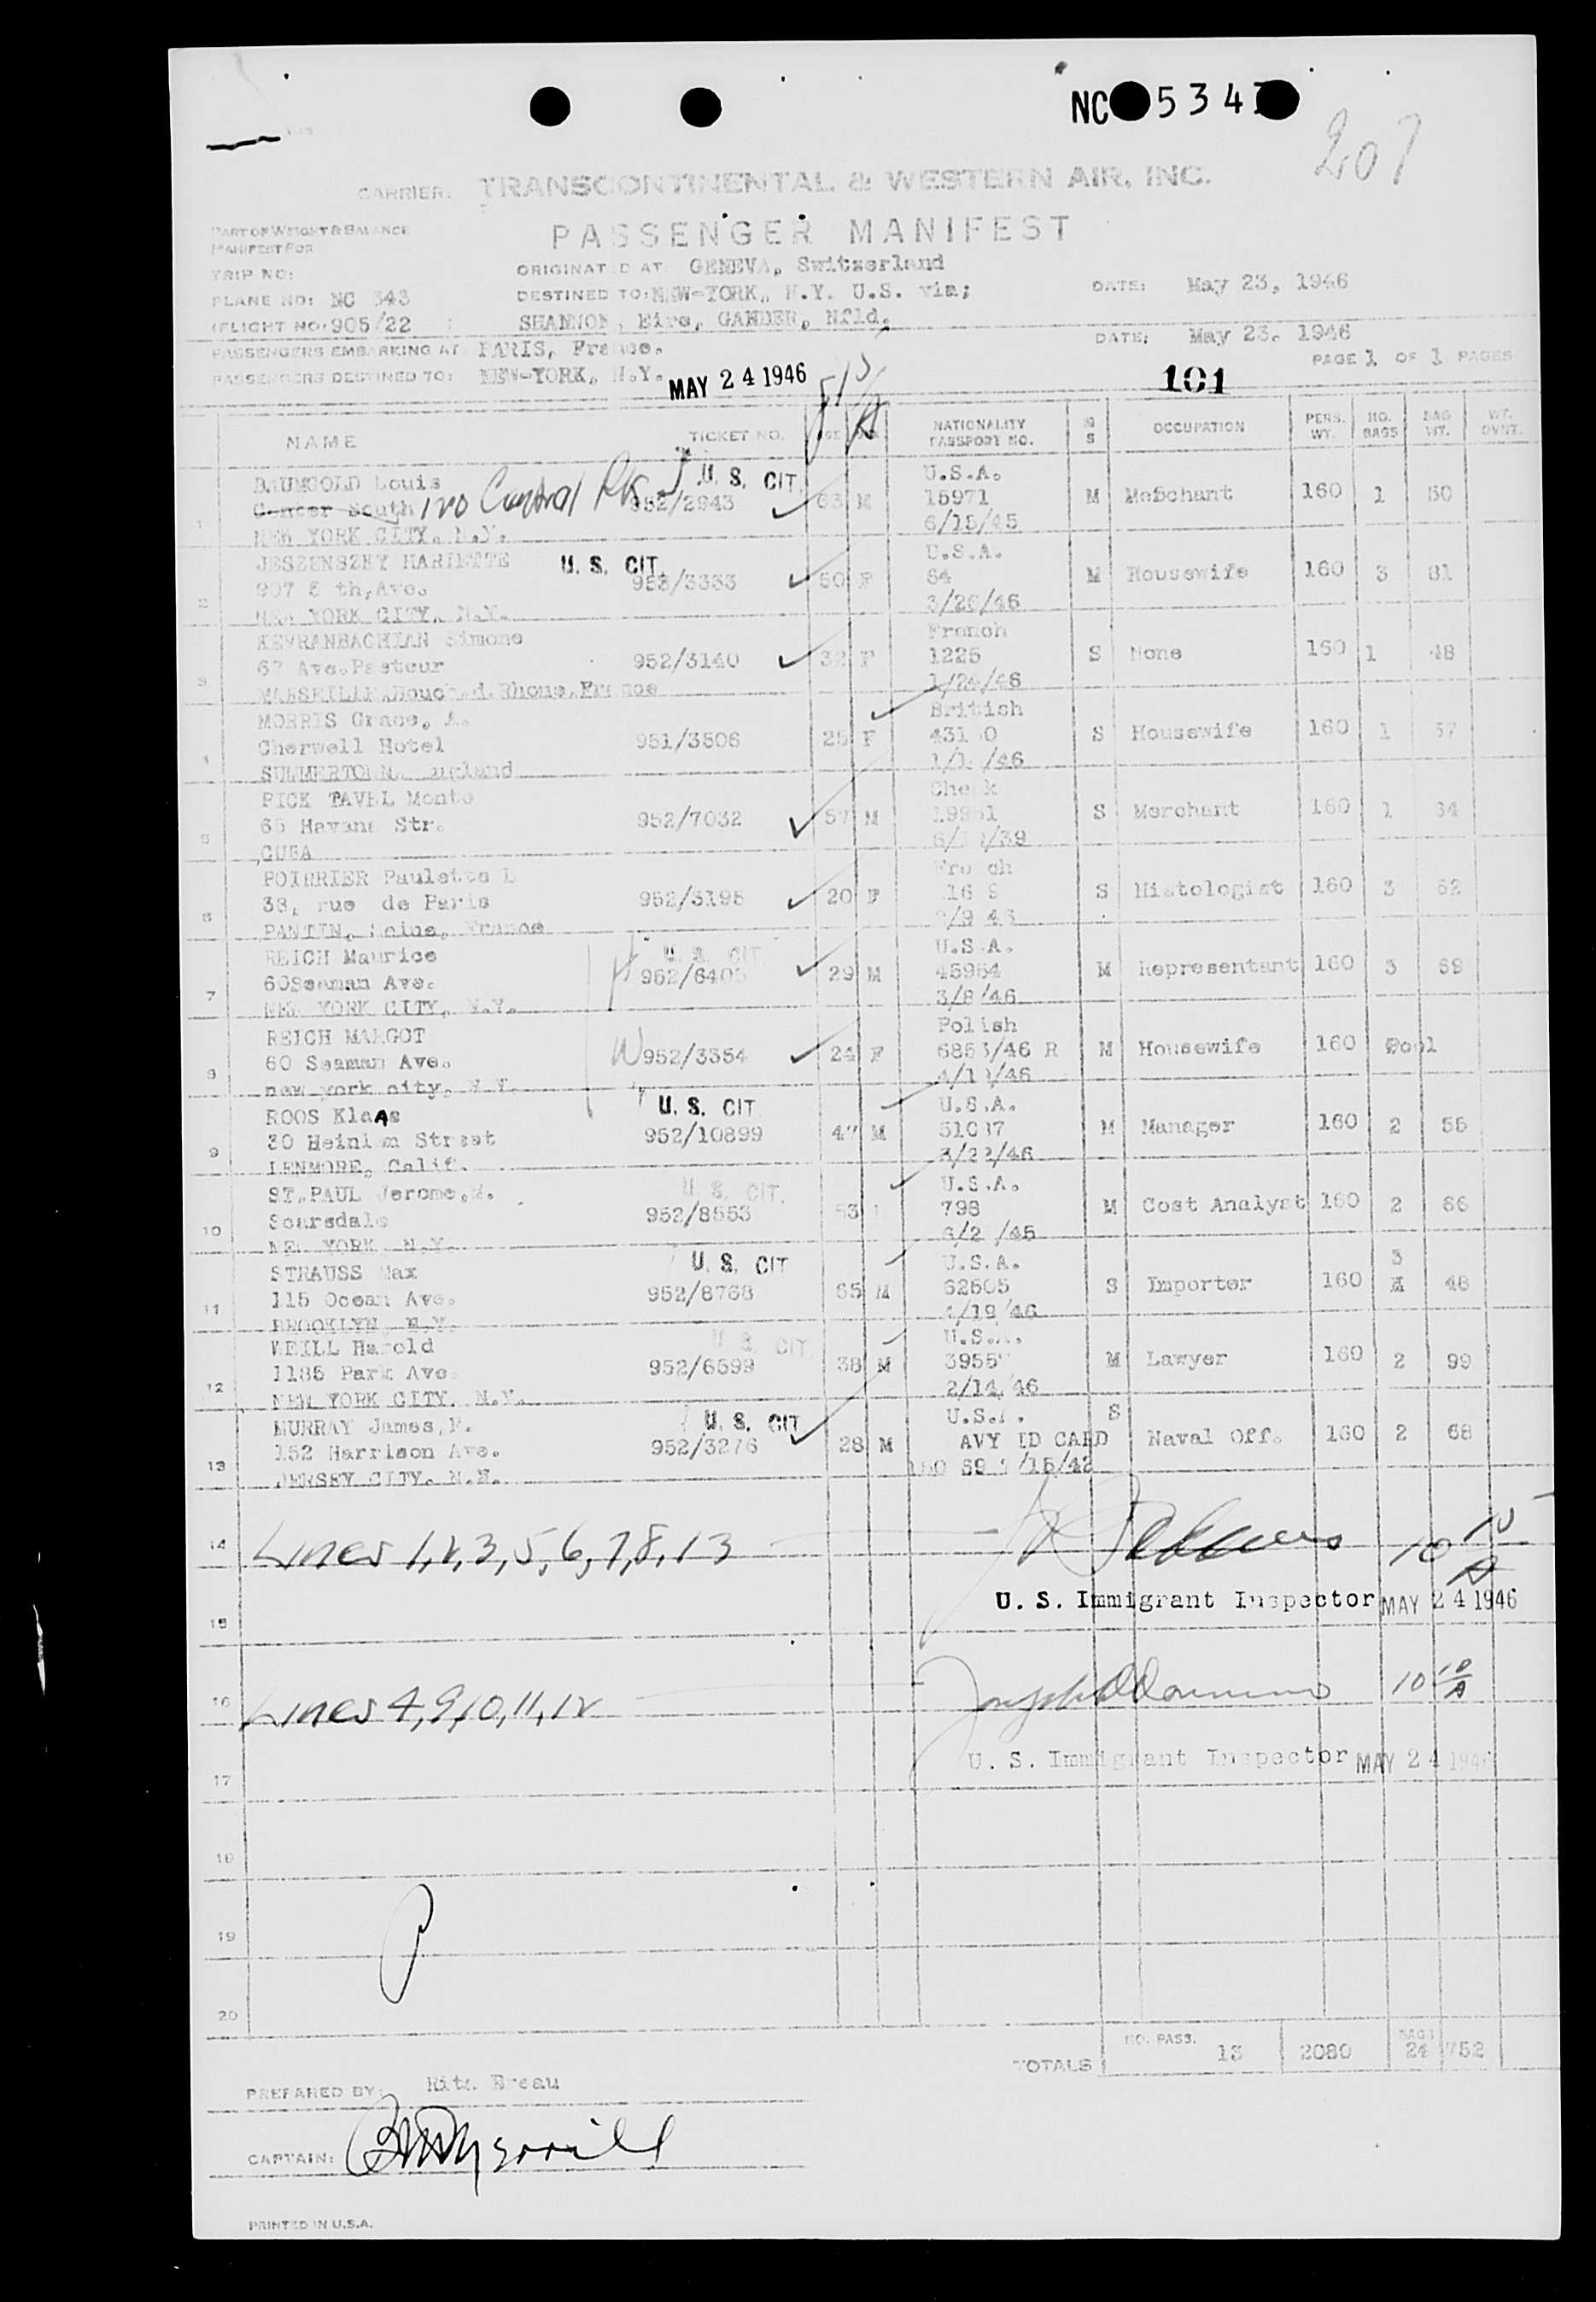 NC 534
207
CARRIER: TRANSCONTINENTAL & WESTERN AIR, INC.
PART OF WEIGHT & BALANCE
MANIFEST FOR
PASSENGER MANIFEST
TRIP NO:
ORIGINATED AT GENEVA, Switzerland
PLANE NO: NC 343
DESTINED TO: NEW-YORK, N.Y. U.S. via;
DATE: May 23, 1946
FLIGHT NO: 905/22
SHANNON, Eire, GANDER, Nfld.
PASSENGERS EMBARKING AT PARIS, France.
DATE: May 23. 1946
PASSENGERS DESTINED TO: NEW-YORK, N.Y.
PAGE 1 OF 1 PAGES
MAY 24 1946
101
NAME TICKET NO. AGE SEX NATIONALITY PASSPORT NO. M S OCCUPATION PERS. WT. NO. BAGS BAG WT. WT. OVWT.
BAUMGOLD Louis U. S. CIT. U.S.A.
1 Center South 120 Central Pk S 952/2943 63 M 15971 M Meßchant 160 1 50
NEW YORK CITY, N.Y. 6/15/45
JESZENSZKY HARIETTE U. S. CIT. U.S.A.
2 907 5 th,Ave. 953/3333 50 F 64 M Housewife 160 3 81
NEW YORK CITY, N.Y. 3/26/46
KEVRANBACHIAN Simone French
3 67 Ave.Pasteur 952/3140 32 F 1225 S None 160 1 48
MARSEILLE, France 1/24/46
MORRIS Grace, A. British
4 Cherwell Hotel 951/3506 25 F S Housewife 160 1 37
SUMMERTOWN, England
PICK TAVEL Monte
5 65 Havana Str. 952/7032 57 M S Merchant 160 1 34
CUBA
POIRRIER Paulette L
6 38, rue de Paris 952/3195 20 F S Histologist 160 3 62
PANTIN, Seine, France
REICH Maurice U. S. CIT U.S.A.
7 60Seaman Ave. H 952/6405 29 M 45954 M Representant 160 3 69
NEW YORK CITY, N.Y. 3/8/46
REICH MARGOT Polish
8 60 Seaman Ave. W 952/3354 24 F 6853/46 R M Housewife 160 Pool
new york city, N.Y.
ROOS KlaAs U. S. CIT U.S.A.
9 952/10899 47 M M Manager 160 2 55
LENMORE, Calif. 3/22/46
ST.PAUL Jerome,M. U. S. CIT. U.S.A.
10 Scarsdale 952/8553 53 798 M Cost Analyst 160 2 66
NEW YORK N.Y.
STRAUSS Max U. S. CIT U.S.A. 3
11 115 Ocean Ave. 952/8768 65 M 62605 S Importer 160 48
BROOKLYN, N.Y. 4/19/46
WEILL Harold U. S. CIT U.S.A.
12 1185 Park Ave. 952/6599 38 M M Lawyer 160 2 99
NEW YORK CITY. N.Y. 2/14/46
MURRAY James,F. U. S. CIT U.S.A. S
13 152 Harrison Ave. 952/3276 28 M AVY ID CARD Naval Off. 160 2 68
JERSEY CITY. N.H.
14 Lines 1,2,3,5,6,7,8,13 10 15 A
U. S. Immigrant Inspector MAY 24 1946
15
16 Lines 4,9,10,11,12 10 10 A
U. S. Immigrant Inspector MAY 24 1946
17
18
19
20
TOTALS NO. PASS. 13 2080 BAGS 24 752
PREPARED BY: Rita Breau
CAPTAIN:
PRINTED IN U.S.A.